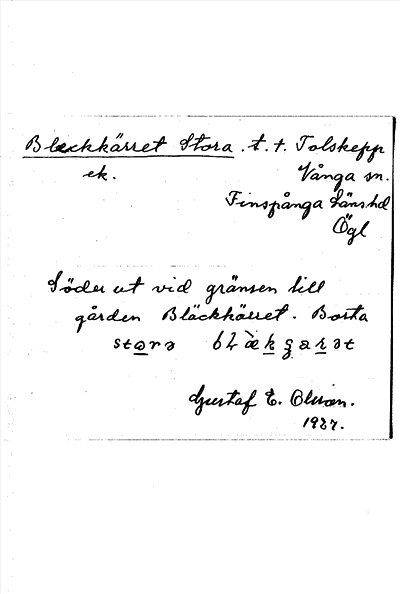 Bläckkärret Stora. t. t. Tolskepp
ek. Vånga sn.
Finspånga länshd
Ögl
Söder ut vid gränsen till
gården Bläckkärret. Borta
Gustaf E. Olsson.
1937.